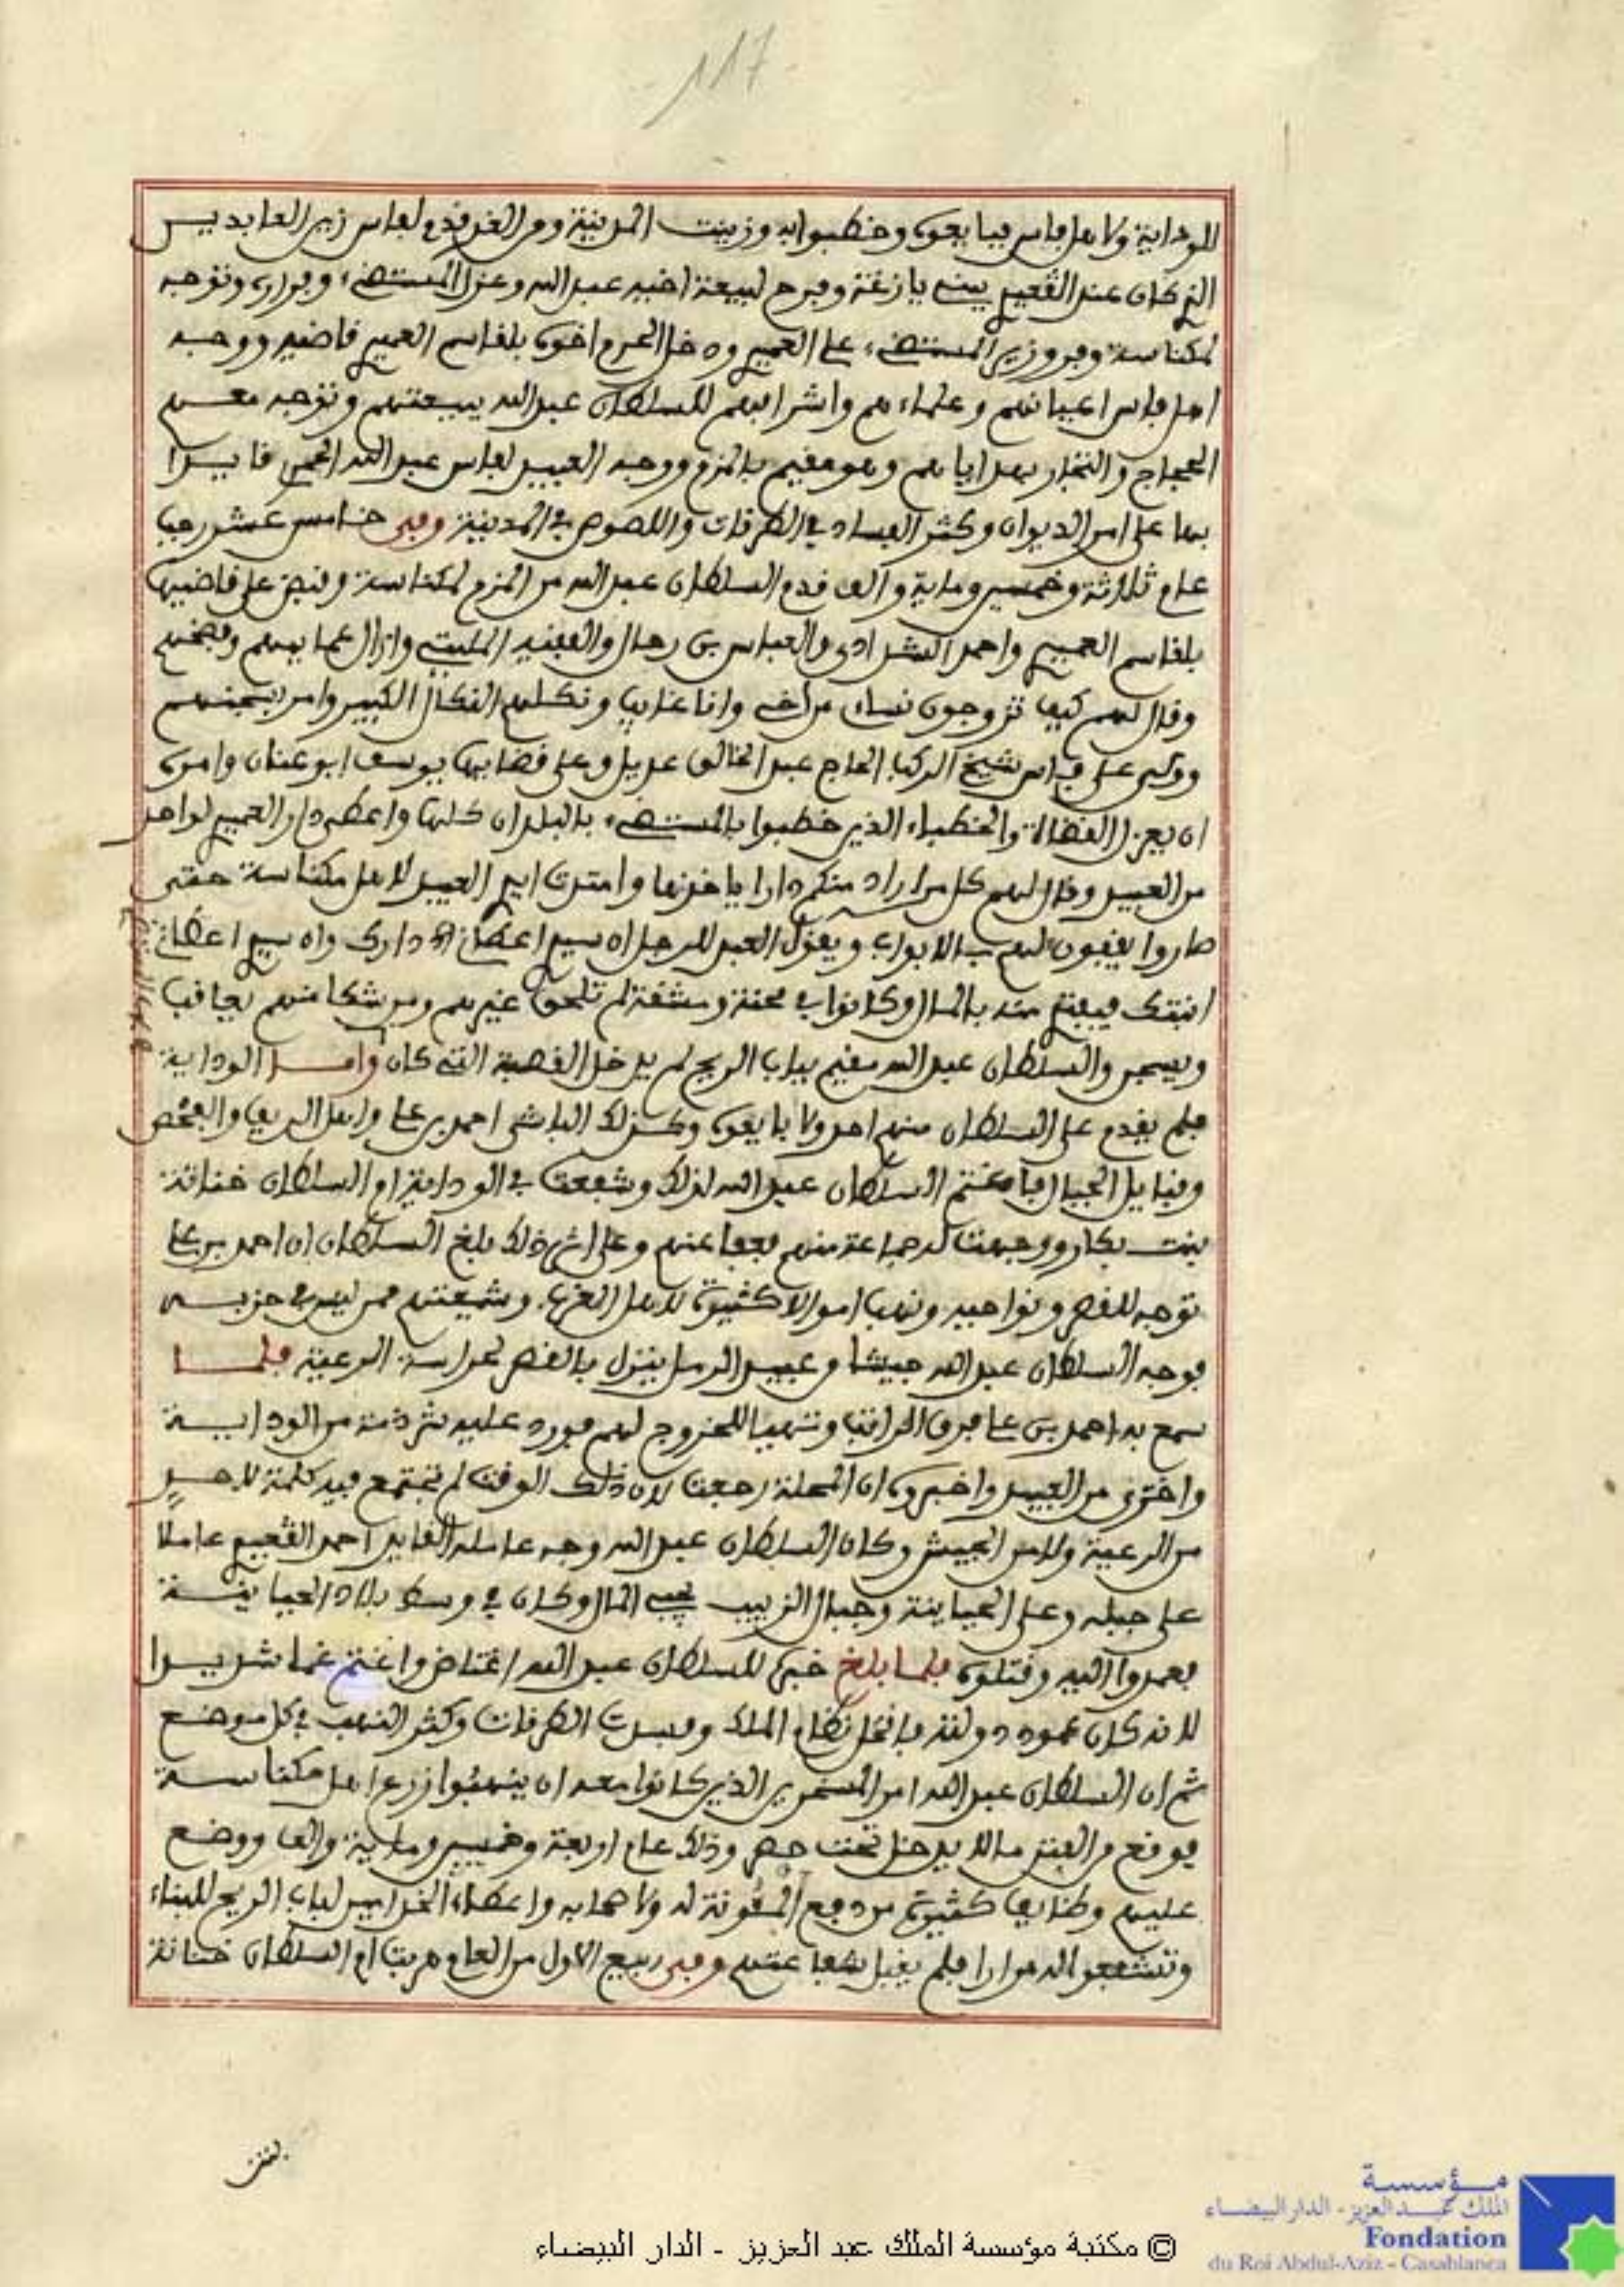 117
للوداية ولاهل فاس فبايعوه وخطبوا به وزينت المدينة ومن الغد قدم لفاس زين العابدين
الذي كان عند القعيم ببني يازغة وفرح لبيعة اخيه عبد الله وعزل المستضيء وفراره وتوجه
لمكناسة وفر وزير المستضيء على العميم ودخل الحرم اخوه بلقاسم العميم قاضيه ووجه
اهل فاس اعيانهم وعلماءهم واشرافهم للسلطان عبد الله ببيعتهم وتوجه معهم
الحجاج والتجار بهداياهم وهو مقيم بالمزم ووجه العبيد لفاس عبد الله الحمر قايدا
بها على امر الديوان وكثر الفساد في الطرقات واللصوص في المدينة وفي خامس عشر رجب
عام ثلاثة وخمسين وماية والف قدم السلطان عبد الله من المزم لمكناسة وقبض على قاضيها
بلقاسم العميم واحمد الشدادي والعباس بن رحال والفقيه المليتي وازال عمايمهم وفضحهم
وقال لهم كيف تزوجون نساء من اخي وانا غايب ونكلهم النكال الكبير وامر بسجنهم
وولى على فاس شيخ الركب الحاج عبد الخالق عديل وعلى قضايها يوسف ابو عنان وامره
ان يعزل القضاة والخطباء الذين خطبوا بالمستضيء بالبلدان كلها واعطى دار العميم لواحد
من العبيد وقال لهم كل من اراد منكم دارا ياخذها وامتدت ايد العبيد لاهل مكناسة حتى
صاروا يقفون لهم بالابواب ويقول العبد للرجل ان سيد اعطاني دارك وان سيد اعطاني
ابنتك فيفتدي منه بالمال وكانوا في محنة ومشقة لم تلحق غيرهم ومن شكا منهم يعاقب
ويسجن والسلطان عبد الله مقيم بباب الريح لم يدخل القصبة التي كان وامـــا الوداية
فلم يقدم على السلطان منهم احد ولا بايعوه وكذلك الباشا احمد بن علي واهل الريف والفحص
وقبايل الجبال فاغتنم السلطان عبد الله لذلك وشفعت في الوداية ام السلطان خناثة
بنت بكار ووجهت له جماعة منهم فعفا عنهم وعلى اثر ذلك بلغ السلطان ان احمد بن علي
توجه للقصر ونواحيه ونهب اموالا كثيرة لاهل الغرب وشيعتهم ممن ليس في حزبه
فوجه السلطان عبد الله جيشا من عبيد الرمل ينزل بالقصر لحراسة الرعية فلمـــا
سمع به احمد بن علي فرق الراتب وتهيا للخروج لهم فورد عليه شرذمة من الوداية
واخرى من العبيد واخبروه ان المحلة رجعت لان ذلك الوقت لم تجتمع فيه كلمة لاحد
من الرعية ولا من الجيش وكان السلطان عبد الله وجه عامله القايد احمد القعيم عاملا
على جبله وعلى الحياينة وجبال الزبيب يجبي المال وكان في وسط بلاد الحياينة
فعمدوا اليه وقتلوه فلما بلغ خبره للسلطان عبد الله اغتاض واغتم غما شديدا
لانه كان عمود دولته فانحل نظام الملك وفسدت الطرقات وكثر النهب في كل موضع
ثم ان السلطان عبد الله امر المسخرين الذين كانوا معه ان ينهبوا زرع اهل مكناسة
فوقع من الفتن ما لا يدخل تحت حصر وذلك عام اربعة وخمسين وماية والف ووضع
عليهم وظايف كثيرة من دفع المئونة له ولاصحابه واعطاء الخدامين لباب الريح للبناء
وتشفعوا له مرارا فلم يقبل شفاعتهم وفي ربيع الاول من العام هربت ام السلطان خناثة
بنت
مؤسسة
الملك عبد العزيز - الدار البيضاء
Fondation
du Roi Abdul-Aziz - Casablanca
© مكتبة مؤسسة الملك عبد العزيز - الدار البيضاء